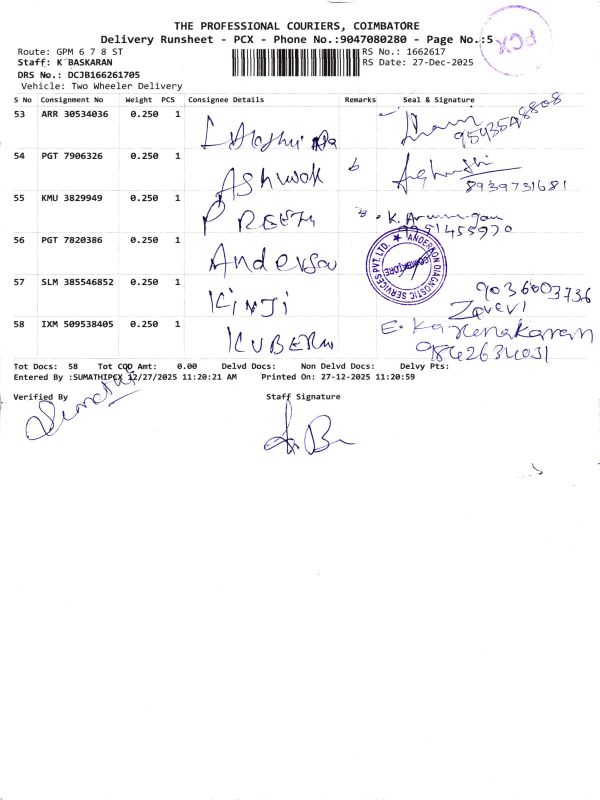 THE PROFESSIONAL COURIERS, COIMBATORE
Delivery Runsheet - PCX - Phone No.:9047080280 - Page No.:5
PCX
Route: GPM 6 7 8 ST
RS No.: 1662617
Staff: K BASKARAN
RS Date: 27-Dec-2025
DRS No.: DCJB166261705
Vehicle: Two Wheeler Delivery
S No Consignment No Weight PCS Consignee Details Remarks Seal & Signature
53 ARR 30534036 0.250 1
54 PGT 7906326 0.250 1 Ashwok
8939731681
55 KMU 3829949 0.250 1 PREETH
K. Arumugam
9991455970
56 PGT 7820386 0.250 1 Anderson
ANDERSON DIAGNOSTIC SERVICES PVT.LTD. ★ COIMBATORE
57 SLM 385546852 0.250 1 KINJI
9036603736
58 IXM 509538405 0.250 1 KUBER
E. Karunakaran
9842634031
Tot Docs: 58 Tot COD Amt: 0.00 Delvd Docs: Non Delvd Docs: Delvy Pts:
Entered By :SUMATHIPCX 12/27/2025 11:20:21 AM Printed On: 27-12-2025 11:20:59
Verified By Staff Signature
Sumathi